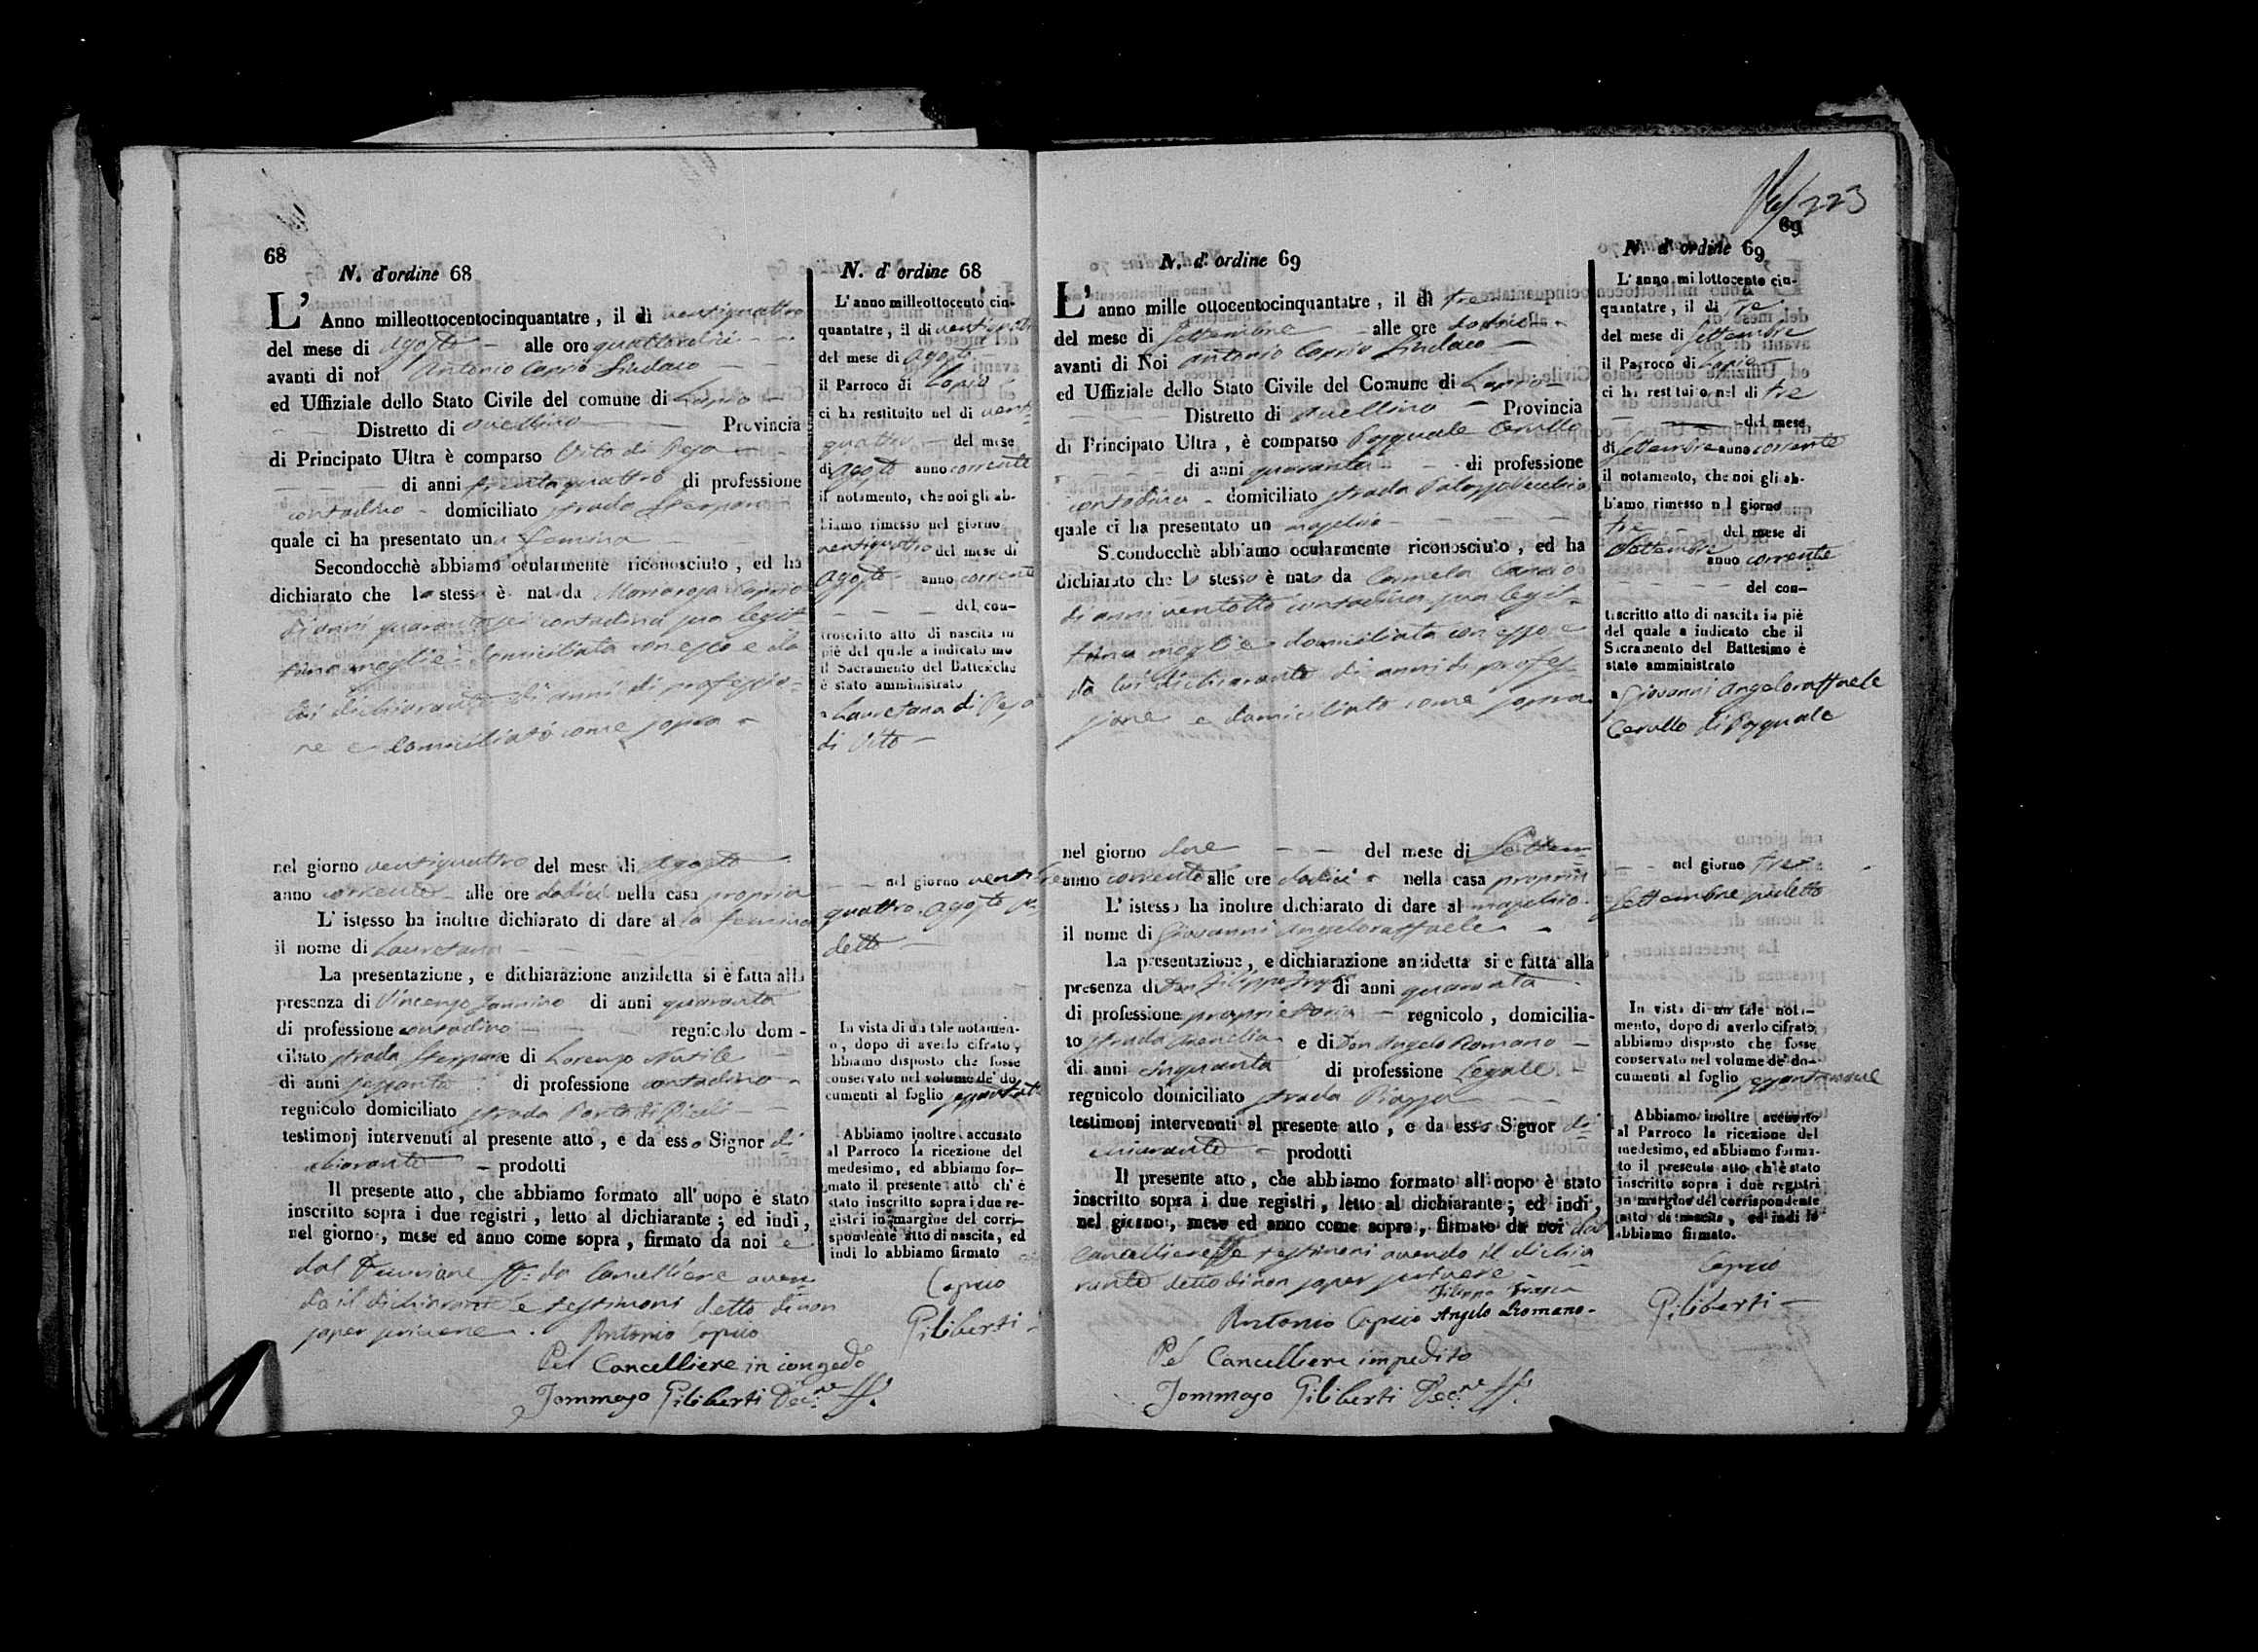 68
N. d'ordine 68
L'Anno milleottocentocinquantatre, il di ventiquattro
del mese di Agosto alle ore quattordici
avanti di noi Antonio Caprio Sindaco
ed Uffiziale dello Stato Civile del comune di Lapio
Distretto di Avellino Provincia
di Principato Ultra è comparso Vito di Peso
di anni trentaquattro di professione
contadino domiciliato strada
quale ci ha presentato una femina
Secondocchè abbiamo ocularmente riconosciuto, ed ha
dichiarato che la stessa è nat da Mariarosa Caprio
di anni quarantasei contadina sua legit
tima moglie domiciliata con esso e da
lui dichiarante di anni di professio=
ne e domiciliato come sopra
nel giorno ventiquattro del mese di Agosto
anno corrente alle ore dodici nella casa propria
L'istesso ha inoltre dichiarato di dare al la femina
il nome di Lauretana
La presentazione, e dichiarazione anzidetta si è fatta alla
presenza di Vincenzo Jannino di anni quaranta
di professione contadino regnicolo dom-
ciliato strada e di Lorenzo
di anni sessanta di professione contadino
regnicolo domiciliato strada Porta di
testimonj intervenuti al presente atto, e da esso Signor di
chiarante prodotti
Il presente atto, che abbiamo formato all'uopo è stato
inscritto sopra i due registri, letto al dichiarante; ed indi,
nel giorno, mese ed anno come sopra, firmato da noi e
dal da Cancelliere aven
do il dichiarante e testimoni detto di non
saper scrivere. Antonio Caprio
Pel Cancelliere in congedo
Tommaso Filiberti Dec.ne ff.
N. d'ordine 68
L'anno milleottocento cin-
quantatre, il di ventiquattro
del mese di Agosto
il Parroco di Lapio
ci ha restituito nel di venti
quattro del mese
di Agosto anno corrente
il notamento, che noi gli ab-
biamo rimesso nel giorno
ventiquattro del mese di
Agosto anno corrente
del con-
troscritto atto di nascita in
piè del quale a indicato mo
il Sacramento del Battesche
è stato amministrato
a Lauretana di Peso
di Vito
nel giorno venti
quattro Agosto su
detto
In vista di un tale notamen-
o, dopo di averlo cifrato,
bbiamo disposto che fosse
conservato nel volume de' do
cumenti al foglio sessantotto
Abbiamo inoltre accusato
al Parroco la ricezione del
medesimo, ed abbiamo for-
mato il presente atto ch'è
stato inscritto sopra i due re-
gistri in margine del corri-
spondente atto di nascita, ed
indi lo abbiamo firmato
Caprio
Filiberti
223
69
N. d'ordine 69
L'anno mille ottocentocinquantatre, il di tre
del mese di Settembre alle ore dodici
avanti di Noi Antonio Caprio Sindaco
ed Uffiziale dello Stato Civile del Comune di Lapio
Distretto di Avellino Provincia
di Principato Ultra, è comparso Pasquale Cerullo
di anni quaranta di professione
contadino domiciliato strada Palazzo Vecchio
quale ci ha presentato un maschio
Secondocchè abbiamo ocularmente riconosciuto, ed ha
dichiarato che lo stesso è nato da Carmela
di anni ventotto contadina sua legit-
tima moglie domiciliata con esso e
da lui dichiarante di anni di profes-
sione e domiciliato come sopra
nel giorno due del mese di Settem
anno corrente alle ore dodici nella casa propria
L'istesso ha inoltre dichiarato di dare al maschio
il nome di Giovanni Angeloraffaele
La presentazione, e dichiarazione anzidetta si è fatta alla
presenza di Don Filippo di anni quaranta
di professione proprietario regnicolo, domicilia-
to strada e di Don Angelo Romano
di anni cinquanta di professione Legale
regnicolo domiciliato strada Piazza
testimonj intervenuti al presente atto, e da esso Signor di
chiarante prodotti
Il presente atto, che abbiamo formato all'uopo è stato
inscritto sopra i due registri, letto al dichiarante; ed indi,
nel giorno, mese ed anno come sopra, firmato da noi dal
Cancelliere e testimoni avendo il dichia
rante detto di non saper scrivere
Filippo
Antonio Caprio Angelo Romano
Pel Cancelliere impedito
Tommaso Filiberti Dec.ne ff.
N. d'ordine 69
L'anno mi lottocento cin-
quantatre, il di tre
del mese di Settembre
il Parroco di Lapio
ci ha restituito nel di tre
del mese
di Settembre anno corrente
il notamento, che noi gli ab-
biamo rimesso nel giorno
tre del mese di
Settembre anno corrente
del con-
troscritto atto di nascita in piè
del quale a indicato che il
Sacramento del Battesimo è
stato amministrato
a Giovanni Angeloraffaele
Cerullo di Pasquale
nel giorno tre
Settembre sudetto
In vista di un tale nota-
mento, dopo di averlo cifrato
abbiamo disposto che fosse
conservato nel volume de' do-
cumenti al foglio sessantanove
Abbiamo inoltre accusato
al Parroco la ricezione del
medesimo, ed abbiamo forma-
to il presente atto ch'è stato
inscritto sopra i due registri
in margine del corrispondente
atto di nascita, ed indi lo
abbiamo firmato.
Caprio
Filiberti